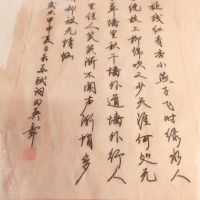 褪残红青杏小燕子飞时绿水人
绕枝上柳绵吹又少天涯何处无
墙里秋千墙外道墙外行人
里佳人笑笑渐不闻声渐悄多
却被无情恼
夏日录苏轼词